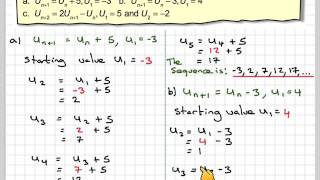 a. Uₙ₊₁ = Uₙ + 5, U₁ = -3 b. Uₙ₊₁ = Uₙ - 3, U₁ = 4
c. Uₙ₊₂ = 2Uₙ₊₁ - Uₙ, U₁ = 5 and U₂ = -2
a) Uₙ₊₁ = Uₙ + 5, U₁ = -3
Starting value U₁ = -3
U₂ = U₁ + 5
= -3 + 5
= 2
U₃ = U₂ + 5
= 2 + 5
= 7
U₄ = U₃ + 5
= 7 + 5
= 12
U₅ = U₄ + 5
= 12 + 5
= 17
The
Sequence is: -3, 2, 7, 12, 17, ...
b) Uₙ₊₁ = Uₙ - 3, U₁ = 4
Starting value U₁ = 4
U₂ = U₁ - 3
= 4 - 3
= 1
U₃ = - 3